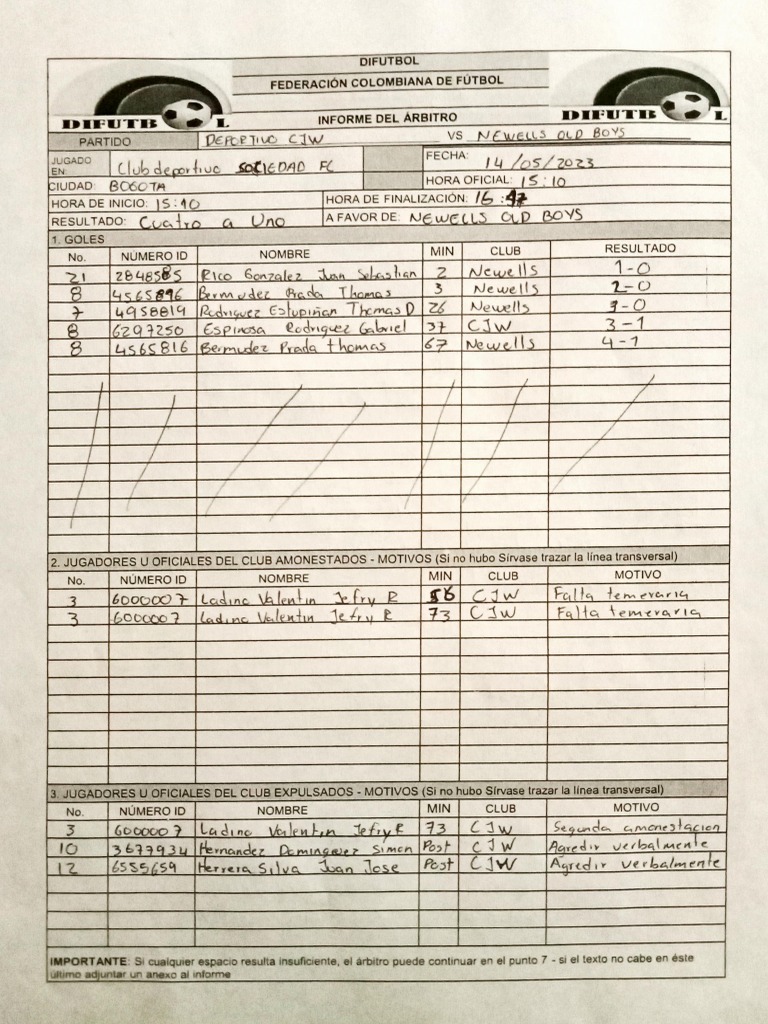 DIFUTBOL
FEDERACIÓN COLOMBIANA DE FÚTBOL
INFORME DEL ÁRBITRO
DIFUTB L
DIFUTB L
PARTIDO DEPORTIVO CJW VS NEWELLS OLD BOYS
JUGADO EN: Club deportivo SOCIEDAD FC FECHA: 14/05/2023
CIUDAD: BOGOTA HORA OFICIAL: 15:10
HORA DE INICIO: 15:10 HORA DE FINALIZACIÓN: 16:47
RESULTADO: Cuatro a Uno A FAVOR DE: NEWELLS OLD BOYS
1. GOLES
No. NÚMERO ID NOMBRE MIN CLUB RESULTADO
21 2848585 Rico Gonzalez Juan Sebastian 2 Newells 1-0
8 4565816 Bermudez Prada Thomas 3 Newells 2-0
7 4958819 Rodriguez Estupiñan Thomas D 26 Newells 3-0
8 6297250 Espinosa Rodriguez Gabriel 37 CJW 3-1
8 4565816 Bermudez Prada thomas 67 Newells 4-1
2. JUGADORES U OFICIALES DEL CLUB AMONESTADOS - MOTIVOS (Si no hubo Sírvase trazar la línea transversal)
No. NÚMERO ID NOMBRE MIN CLUB MOTIVO
3 6000007 Ladino Valentin Jefry R 56 CJW Falta temeraria
3 6000007 Ladino Valentin Jefry R 73 CJW Falta temeraria
3. JUGADORES U OFICIALES DEL CLUB EXPULSADOS - MOTIVOS (Si no hubo Sírvase trazar la línea transversal)
No. NÚMERO ID NOMBRE MIN CLUB MOTIVO
3 6000007 Ladino Valentin Jefry R 73 CJW Segunda amonestacion
10 3677934 Hernandez Dominguez Simon Post CJW Agredir verbalmente
12 6555659 Herrera Silva Juan Jose Post CJW Agredir verbalmente
IMPORTANTE: Si cualquier espacio resulta insuficiente, el árbitro puede continuar en el punto 7 - si el texto no cabe en éste
último adjuntar un anexo al informe